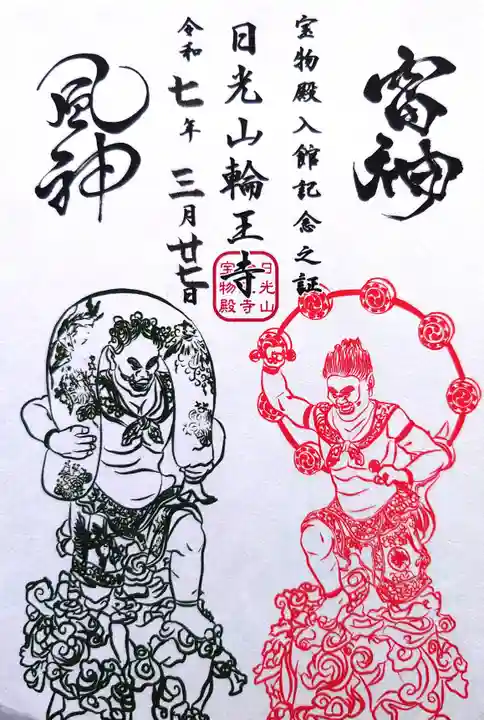 雷神
宝物殿入館記念之証
日光山輪王寺
令和七年三月廿七日
風神
日光山
宝物殿